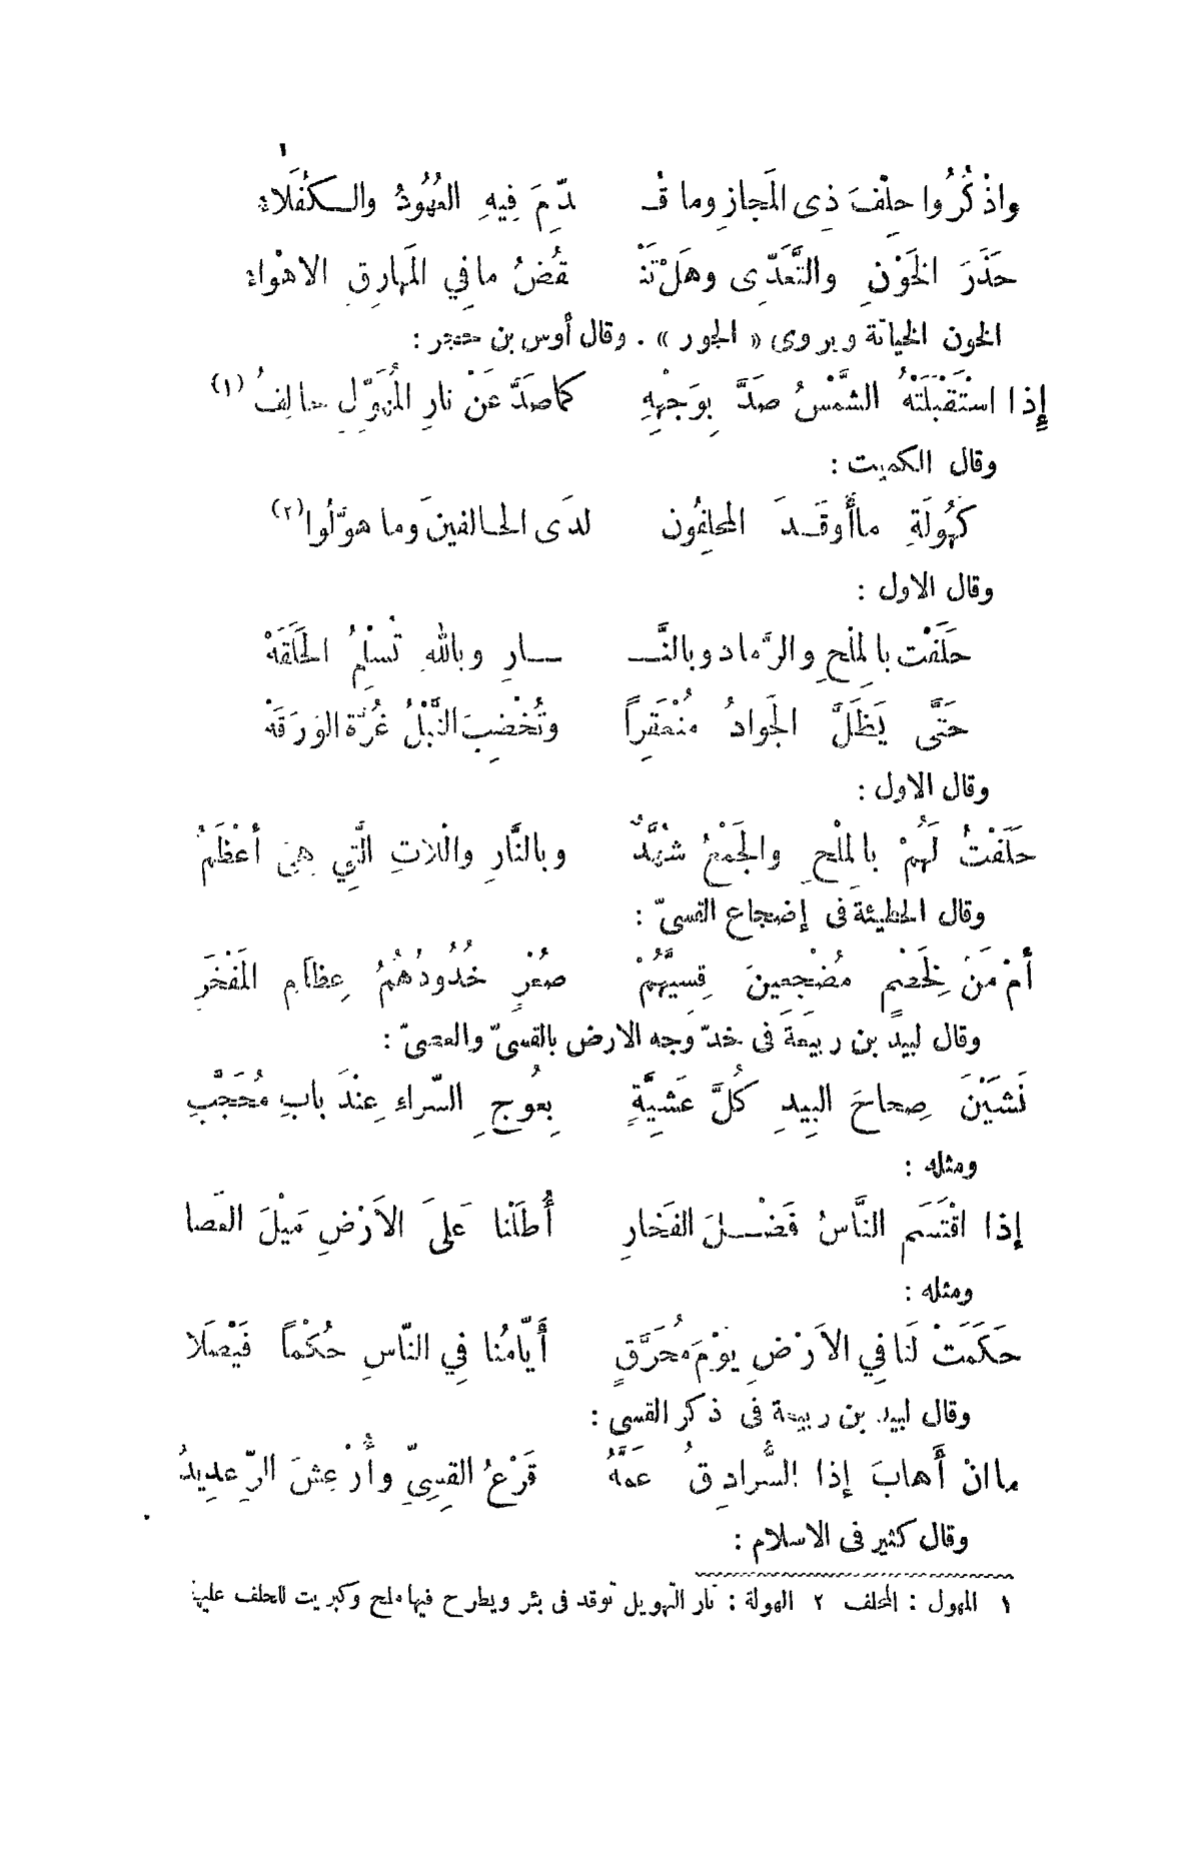 واذْكُرُوا حِلْفَ ذِى المَجازِ وما قُـ دِّمَ فِيهِ العُهُودُ والـكُفَلَاءُ
حَذَرَ الخَوْنِ والتَّعَدّى وهَلْ تَنْـ قُضُ ما فِي المَهارِقِ الاهْواءُ
الخون الخيانة ويروى « الجور » . وقال أوس بن حجر :
إِذا اسْتَقْبَلَتْهُ الشَّمْسُ صَدَّ بِوَجْهِهِ كما صَدَّ عَنْ نارِ المُهَوِّلِ حالِفُ (١)
وقال الكميت :
كَهُولَةِ ما أَوقَـدَ المحلِفُون لدَى الحـالفينَ وما هوَّلُوا (٢)
وقال الاول :
حَلَفَتْ بالمِلْحِ والرَّماد وبالنَّـ ـارِ وباللهِ تُسْلِمُ الحَلَقَهْ
حَتَّى يَظَلَّ الجَوادُ مُنْعَفِراً وتُخْضِبَ النَّبْلُ غُرَّة الوَرَقَهْ
وقال الاول :
حَلَفْتُ لَهُمْ بالمِلْحِ والجَمْعُ شُهَّدٌ وبالنَّارِ والْلاتِ الَّتِي هِيَ أعْظَمُ
وقال الحطيئة فى إضجاع القسىّ :
أمْ مَنْ لِخَصْمٍ مُضْجِعِينَ قِسِيَّهُمْ صُعْرٍ خُدُودُهُمُ عِظَامِ المَفْخَرِ
وقال لبيد بن ربيعة فى خدّ وجه الارض بالقسىّ والعصىّ :
نَشِيْنَ صِحاحَ البِيدِ كُلَّ عَشِيَّةٍ بِعُوجِ السّراءِ عِنْدَ بابِ مُحَجَّبِ
ومثله :
إذا اقْتَسَم النَّاسُ فَضْـلَ الفَخارِ أُطَلْنا عَلىَ الاَرْضِ مَيْلَ العَصا
ومثله :
حَكَمَتْ لَنا فِي الاَرْضِ يَوْمَ مُحَرَّقٍ أَيّامُنا فِي النّاسِ حُكْماً فَيْصَلا
وقال لبيد بن ربيعة فى ذكر القسى :
ما انْ أَهابَ إِذا السُّرادِقُ عَمَّهُ قَرْعُ القِسِيِّ وأُرْعِشَ الرِّعدِيدُ
وقال كثير فى الاسلام :
١ المهول : المحلف ٢ الهولة : نار التهويل توقد فى بئر ويطرح فيها ملح وكبريت للحلف عليها